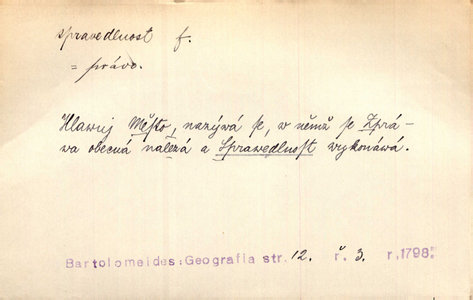 spravedlnost f.
= právo.
Hlawnj Město, nazývá se, w němž se Zprá-
wa obecná nalezá a Sprawedlnost wykonáwá.
Bartolomeides: Geografia str. 12. ř. 3. r. 1798.